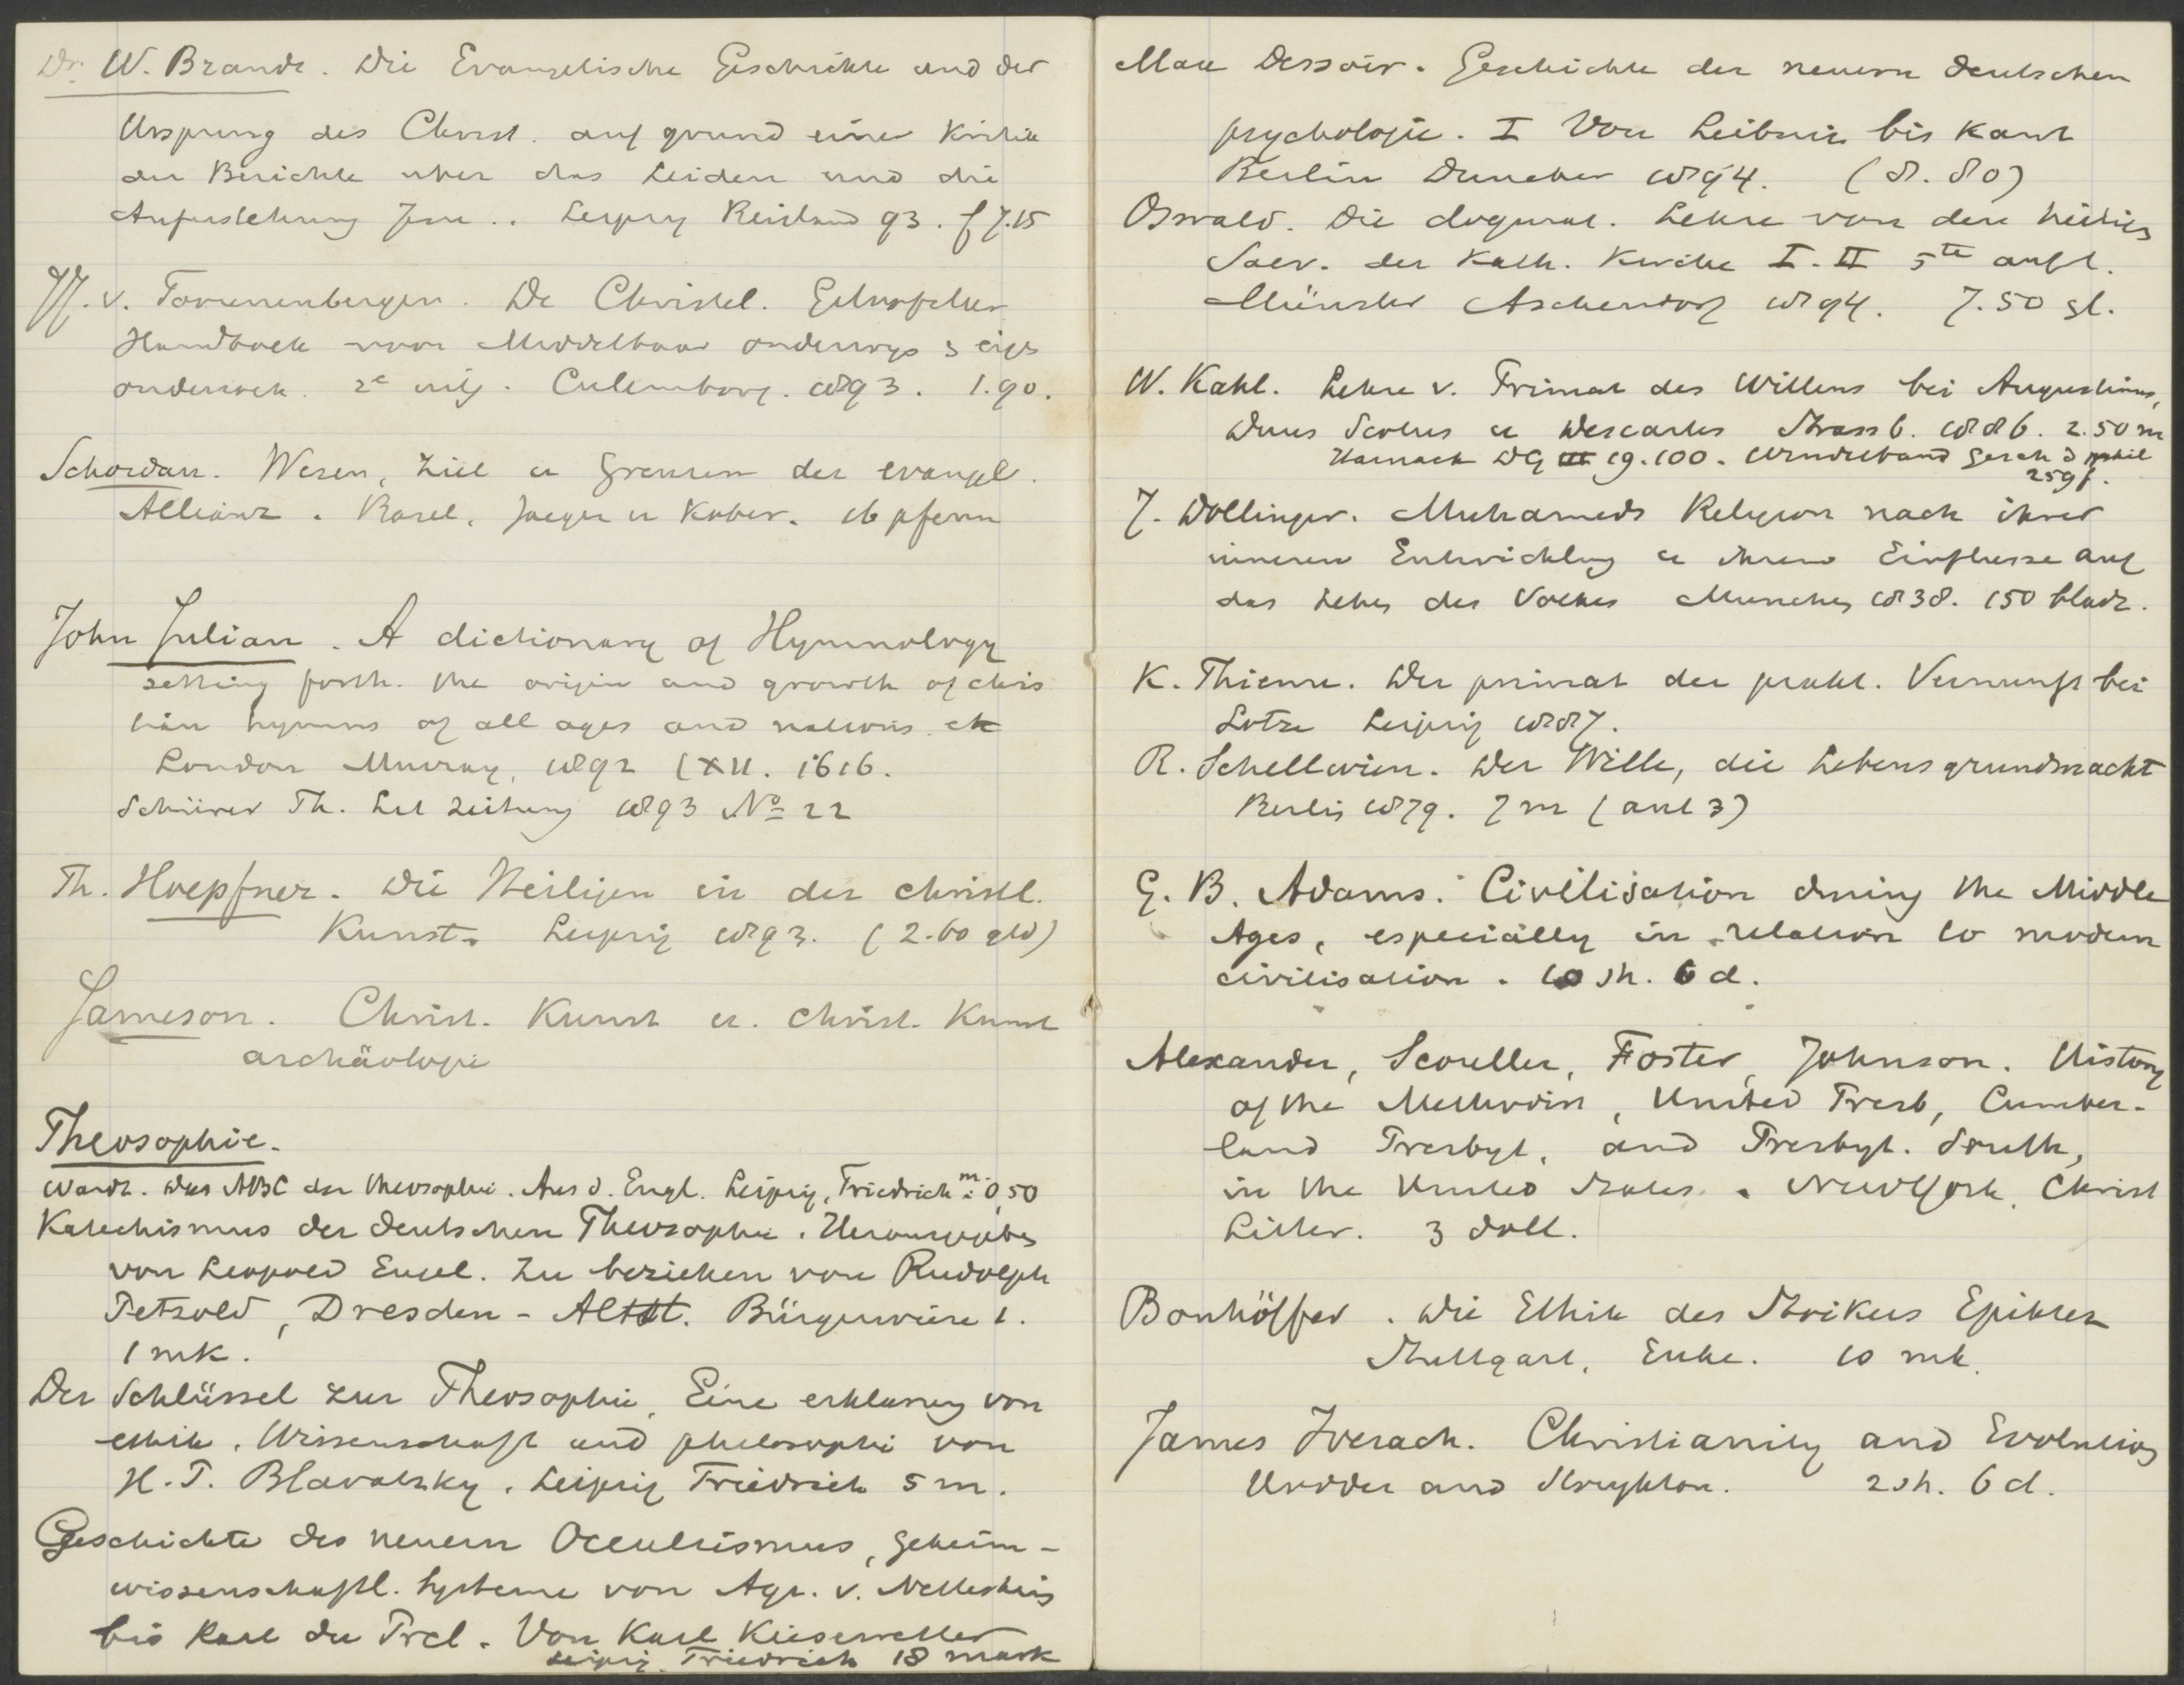 Dr. W. Brandt. Die Evangelische Geschichte und der
Ursprung des Christ. auf grund einer Kritik
der Berichte uber das Leiden und die
Auferstehung Jesu .. Leipzig Reisland 93. f 7.15
v. Toorenenbergen. De Christel. Geloofsleer
Handboek voor Middelbaar onderwys & eigen
onderzoek. 2e uitg. Culemborg. 1893. 1.90.
Schordan. Wesen, Ziel u Grenzen der evangel.
Allianz. Basel, Jaeger u Kober. 16 pfenn
John Julian. A dictionary of Hymnology
setting forth. the origin and growth of chris
tian hymns of all ages and nations. etc
London Murray, 1892 (XII. 1616.
Schürer Th. Lit Zeitung 1893 No 22
Th. Hoepfner. Die Heiligen in der christl.
Kunst. Leipzig 1893. (2.60 gld)
Jameson. Christ. Kunst u. christ. Kunst
archäologie
Theosophie.
Das ABC der theosophie. Aus d. Engl. Leipzig, Friedrich m: 0,50
Katechismus der deutschen Theosophie. Herausgegeben
von Leopold Engel. Zu beziehen von Rudolph
Petzold, Dresden - Altst. Bürgerwiese 1.
1 mk.
Der Schlüssel zur Theosophie, Eine erklarung von
ethik, Wissenschaft und philosophie von
H. P. Blavatzky. Leipzig Friedrich 5 m.
Geschichte des neuern Occultismus, geheim-
wissenschaftl. Systeme von Agr. v. Nettesheim
bis Karl du Prel. Von Karl Kiesewetter
Leipzig. Friedrich 18 mark
Max Dessoir. Geschichte der neuern deutschen
psychologie. I Von Leibniz bis Kant
Berlin Duncker 1894. (8.80)
Oswald. Die dogmat. Lehre von den heiligen
Sacr. der Kath. Kirche I. II 5te aufl.
Münster Aschendorf 1894. 7.50 gl.
W. Kahl. Lehre v. Primat des Willens bei Augustinus,
Duns Scotus u Descartes Strassb. 1886. 2.50 m
Harnack DG III 19.100. Windelband Gesch d phil
259 f.
J. Döllinger. Muhameds Religion nach ihrer
inneren Entwicklung u ihrem Einflusse auf
das Leben der Volker Munchen 1838. 150 bladz.
K. Thieme. Der primat der prakt. Vernunft bei
Lotze Leipzig 1887.
R. Schellwien. Der Wille, die Lebensgrundmacht
Berlin 1879. 7 m (ant 3)
G. B. Adams. Civilisation during the Middle
Ages, especially in relation to modern
civilisation. 10 sh. 6 d.
Alexander, Scouller, Foster, Johnson. History
of the Methodist, United Presb, Cumber-
land Presbyt, and Presbyt. South,
in the United States. New York, Christ
Litter. 3 doll.
Bonhöffer. Die Ethik des Stoikers Epiktet
Stuttgart, Enke. 10 mk.
James Iverach. Christianity and Evolution
Hodder and Stoughton. 2 sh. 6 d.